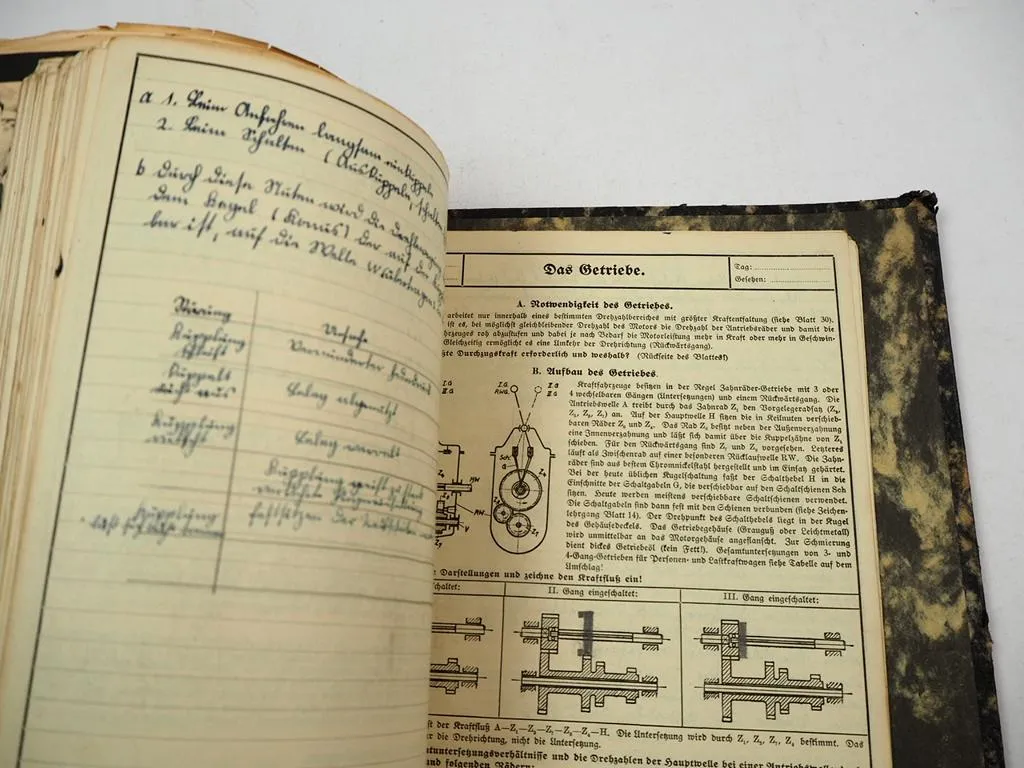 a 1. Beim Anfahren langsam einkuppeln
2. Beim Schalten (Auskuppeln, schalten
b Durch diese Nuten wird die
dem Kegel (Konus) der auf der
bar ist, auf die Welle übertragen.
Störung
Ursache
Kupplung
schleift
Verminderter
Kuppelt
nicht aus
Belag abgenutzt
Kupplung
rutscht
Belag verölt
Kupplung
Kupplung
festsitzen der
Das Getriebe.
Tag:
Gesehen:
A. Notwendigkeit des Getriebes.
arbeitet nur innerhalb eines bestimmten Drehzahlbereiches mit größter Kraftentfaltung (siehe Blatt 30).
ist es, bei möglichst gleichbleibender Drehzahl des Motors die Drehzahl der Antriebsräder und damit die
hrzeuges roh abzustufen und dabei je nach Bedarf die Motorleistung mehr in Kraft oder mehr in Geschwin-
Gleichzeitig ermöglicht es eine Umkehr der Drehrichtung (Rückwärtsgang).
ßte Durchzugskraft erforderlich und weshalb? (Rückseite des Blattes!)
B. Aufbau des Getriebes.
Kraftfahrzeuge besitzen in der Regel Zahnräder-Getriebe mit 3 oder
4 wechselbaren Gängen (Untersetzungen) und einem Rückwärtsgang. Die
Antriebswelle A treibt durch das Zahnrad Z₁ den Vorgelegeradsatz (Z₂,
Z₃, Z₅, Z₇) an. Auf der Hauptwelle H sitzen die in Keilnuten verschieb-
baren Räder Z₆ und Z₄. Das Rad Z₄ besitzt neben der Außenverzahnung
eine Innenverzahnung und läßt sich damit über die Kuppelzähne von Z₁
schieben. Für den Rückwärtsgang sind Z₇ und Z₈ vorgesehen. Letzteres
läuft als Zwischenrad auf einer besonderen Rücklaufwelle RW. Die Zahn-
räder sind aus bestem Chromnickelstahl hergestellt und im Einsatz gehärtet.
Bei der heute üblichen Kugelschaltung faßt der Schalthebel H in die
Einschnitte der Schaltgabeln G, die verschiebbar auf den Schaltschienen Sch
sitzen. Heute werden meistens verschiebbare Schaltschienen verwendet.
Die Schaltgabeln sind dann fest mit den Schienen verbunden (siehe Zeichen-
lehrgang Blatt 14). Der Drehpunkt des Schalthebels liegt in der Kugel
des Gehäusedeckels. Das Getriebegehäuse (Grauguß oder Leichtmetall)
wird unmittelbar an das Motorgehäuse angeflanscht. Zur Schmierung
dient dickes Getriebeöl (kein Fett!). Gesamtuntersetzungen von 3- und
4-Gang-Getrieben für Personen- und Lastkraftwagen siehe Tabelle auf dem
Umschlag!
I.G
RWG.
II.G
III.G
Sch.
G
HW
RW
V
Darstellungen und zeichne den Kraftfluß ein!
chaltet:
II. Gang eingeschaltet:
III. Gang eingeschaltet:
1
ist der Kraftfluß A—Z₁—Z₂—Z₇—Z₈—Z₆—H. Die Untersetzung wird durch Z₁, Z₂, Z₇, Z₆ bestimmt. Das
r die Drehrichtung, nicht die Untersetzung.
mtuntersetzungsverhältnisse und die Drehzahlen der Hauptwelle bei einer Antriebswelle
und folgenden Rädern: